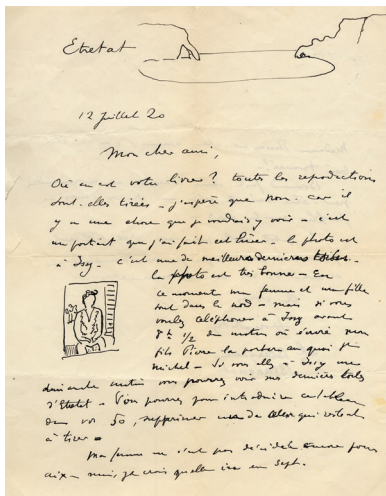 Etretat
12 Juillet 20
Mon cher ami,
Où en est votre livre? toutes les reproductions
sont-elles tirées - j'espère que non. car il
y a une chose que je voudrais y voir - c'est
un portrait que j'ai fait cet hiver. la photo est
à Issy. c'est une de meilleures dernières toiles.
la photo est très bonne - En
ce moment ma femme et ma fille
sont dans le nord - mais si vous
voulez téléphoner à Issy avant
8h 1/2 du matin où s'ouvre mon
fils Pierre la portera au quai St
michel - Si vous allez à Issy une
dimanche matin vous pourrez voir mes dernières toiles
d'Etretat - Vous pourrez pour introduire
dans vos 50, supprimer une de celles qui restent
à tirer -
Ma femme n'est pas décidée encore pour
aix - mais je crois qu'elle ira en Sept.